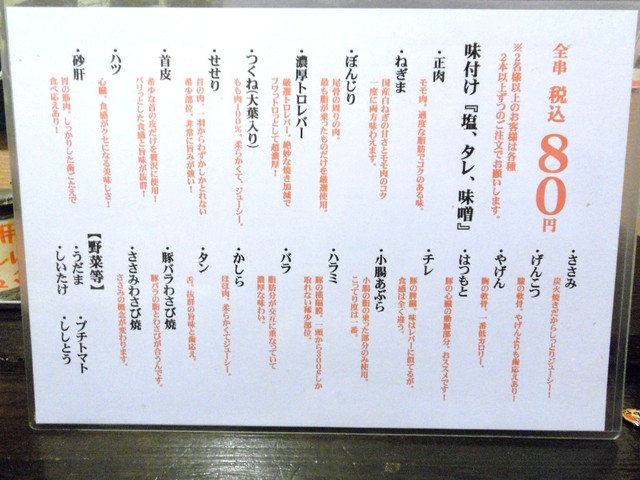 全串 税込 80円
※2名様以上のお客様は各種
2本以上ずつのご注文でお願いします。
味付け『塩、タレ、味噌』
・正肉
モモ肉。適度な脂肪でコクのある味。
・ねぎま
国産白ねぎの甘さとモモ肉のコク
一度に両方味わえます。
・ぼんじり
尾骨の周りの肉。
最も脂が乗ったものだけを厳選使用。
・濃厚トロレバー
厳選トロレバー。絶妙な焼き加減で
フワットロっとして超濃厚！
・つくね(大葉入り)
もも肉100%。柔らかくて、ジューシー。
・せせり
首の肉。一羽からわずかしかとれない
希少部位。非常に旨みが強い！
・首皮
希少な首の皮だけを贅沢に使用！
パリッとした食感と旨味が抜群！
・ハツ
心臓。食感がクセになる美味しさ！
・砂肝
胃の筋肉。しっかりした歯ごたえで
食べ応えあり！
・ささみ
炭火焼きだからしっとりジューシー！
・げんこつ
膝の軟骨。やげんよりも歯応えあり！
・やげん
胸の軟骨。一番低カロリー。
・はつもと
豚の心臓の動脈部分。おススメです！
・チレ
豚の脾臓。味はレバーに似てるが、
食感は全く違う。
・小腸あぶら
小腸の脂の乗った部分のみ使用。
こってり度は一番。
・ハラミ
豚の横隔膜。一頭から300gしか
取れない稀少部位。
・バラ
脂肪分が交互に重なっていて
濃厚な味わい。
・かしら
ほほ肉。柔らかくてジューシー。
・タン
舌。抜群の旨味と歯応え。
・豚バラわさび焼
豚バラの脂とわさびが合うんです。
・ささみわさび焼
ささみの概念が変わります。
【野菜等】
・うだま ・プチトマト
・しいたけ ・ししとう